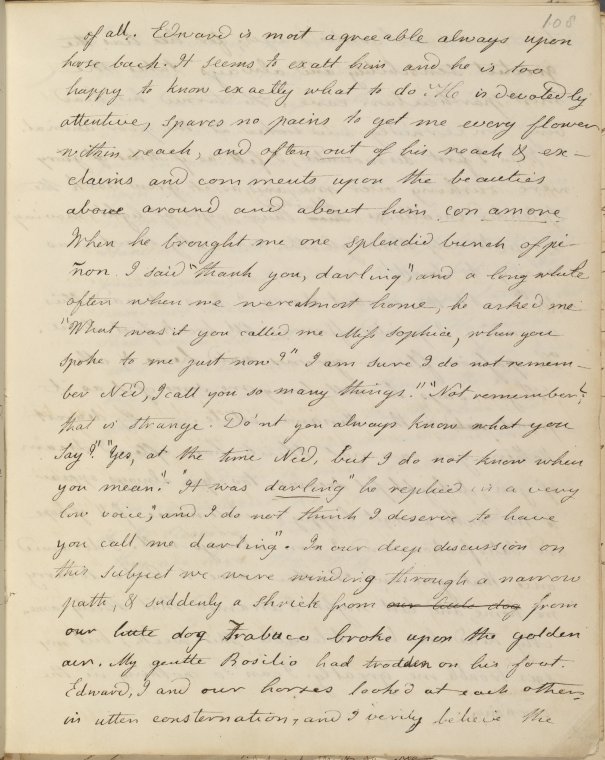 108
of all. Edward is most agreeable always upon
horse back. It seems to exalt him and he is too
happy to know exactly what to do. He is devotedly
attentive, spares no pains to get me every flower
within reach, and often out of his reach & ex-
claims and comments upon the beauties
above around and about him con amore
When he brought me one splendid bunch of pi-
ñon. I said "thank you, darling", and a long while
after when we were almost home, he asked me
"What was it you called me Miss Sophia, when you
spoke to me just now?" I am sure I do not remem-
ber Ned, I call you so many things." "Not remember?
that is strange. Do'nt you always know what you
say?" "Yes, at the time Ned, but I do not know when
you mean." "It was darling" he replied in a very
low voice, "and I do not think I deserve to have
you call me darling". In our deep discussion on
this subject we were winding through a narrow
path, & suddenly a shriek from our little dog from
our little dog Trabuco broke upon the golden
air. My gentle Rosilio had trodden on his foot.
Edward, I and our horses looked at each other
in utter consternation, and I verily believe the